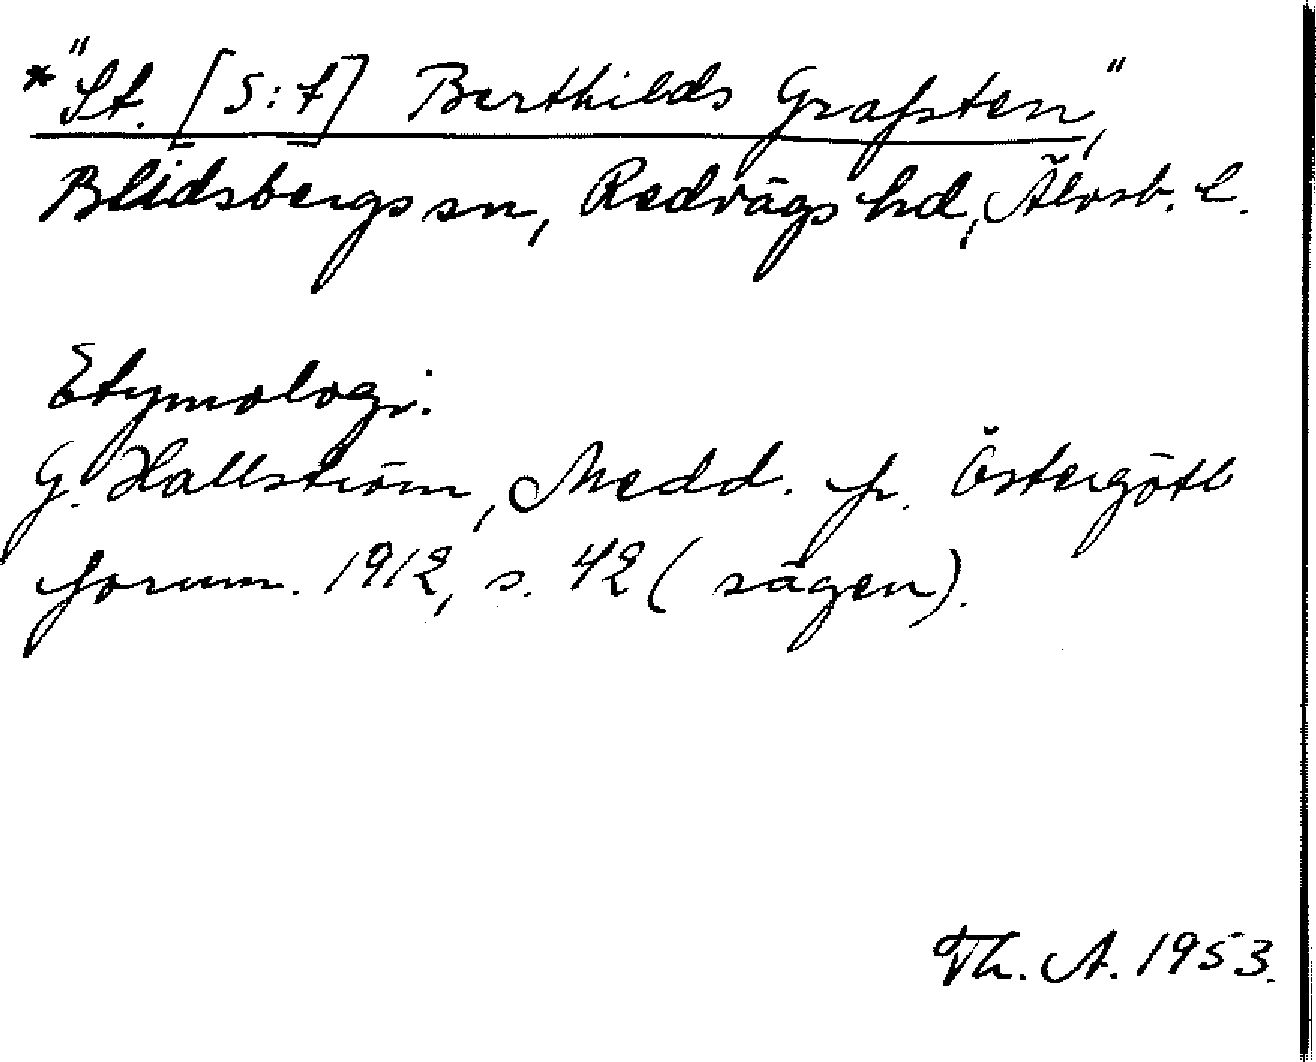 *"St. [S:t] Berthilds Grafsten,"
Blidsbergs sn, Redvägs hd, Älvsb. l.
Etymologi:
G. Hallström, Medd. fr. Östergötl
fornm. 1912, s. 42 (sägen).
Th. A. 1953.